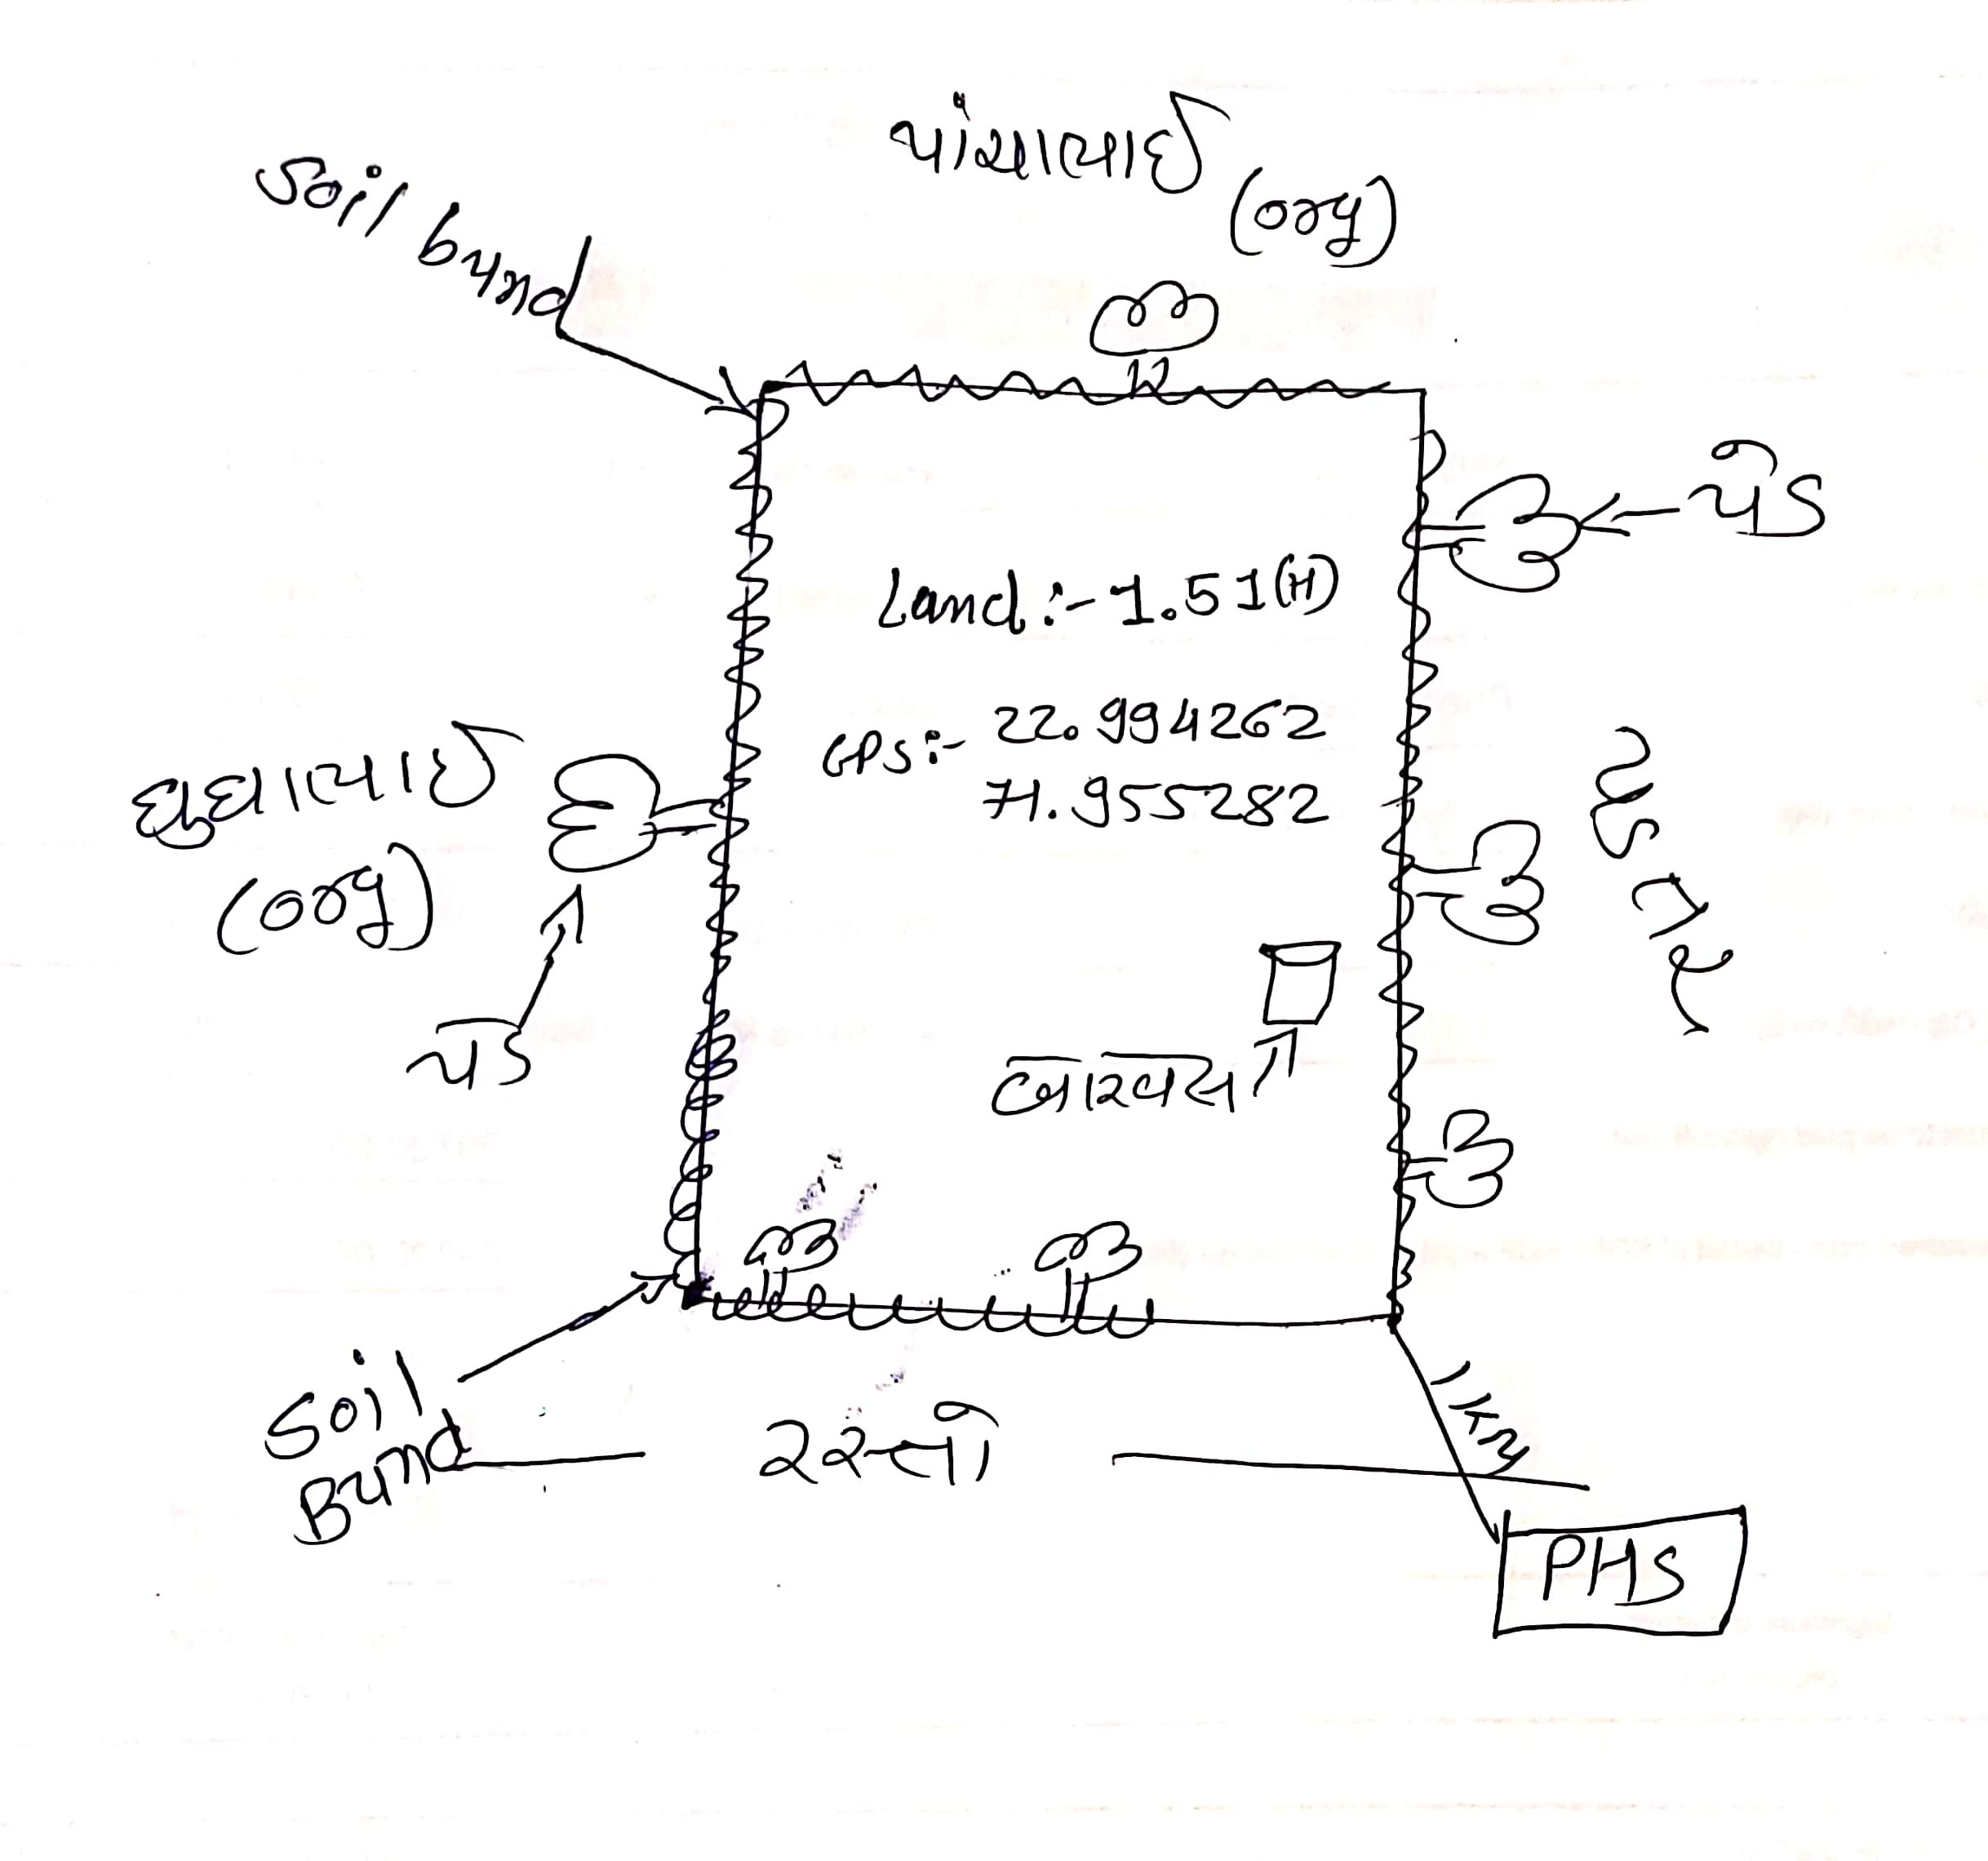 Soil bund
પાંચાભાઈ
(org)
પેડ
Land :- 1.51(H)
GPS:- 22.994262
71.955282
ઘુઘાભાઈ
(org)
પેડ
બોરવેલ
Soil
Bund
રસ્તો
1km
PHS